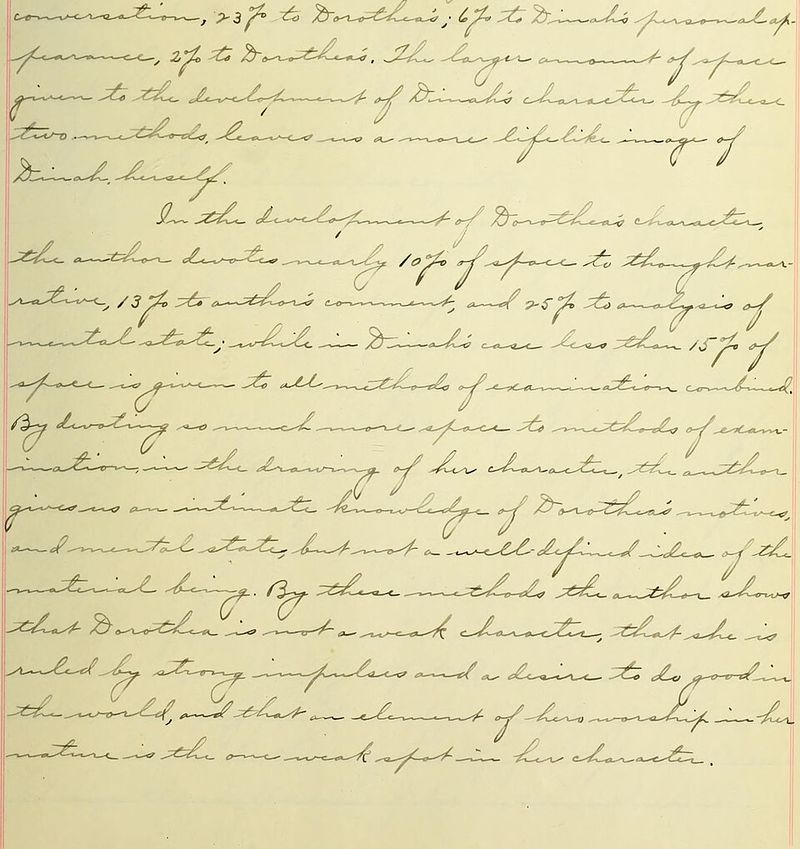 conversation, 23% to Dorothea's; 6% to Dinah's personal ap-
pearance, 2% to Dorothea's. The larger amount of space
given to the development of Dinah's character by these
two methods, leaves us a more lifelike image of
Dinah, herself.
In the development of Dorothea's character,
the author devotes nearly 10% of space to thought nar-
rative, 13% to author's comment, and 25% to analysis of
mental state; while in Dinah's case less than 15% of
space is given to all methods of examination combined.
By devoting so much more space to methods of exam-
ination, in the drawing of her character, the author
gives us an intimate knowledge of Dorothea's motives,
and mental state, but not a well-defined idea of the
material being. By these methods the author shows
that Dorothea is not a weak character, that she is
ruled by strong impulses and a desire to do good in
the world, and that an element of hero worship in her
nature is the one weak spot in her character.